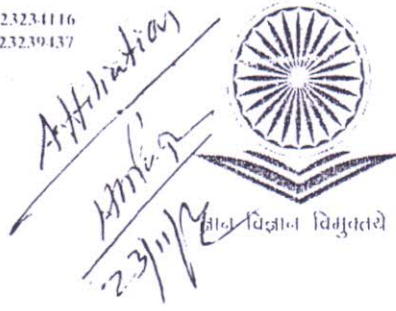 23234116
23239437
Affiliation
ज्ञान विज्ञान विमुक्तये